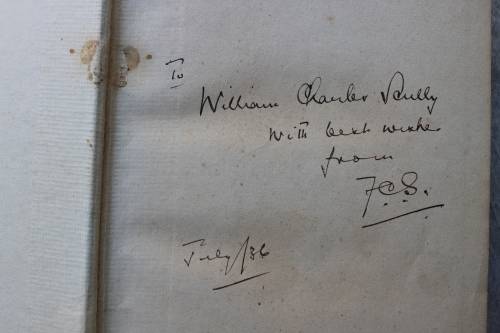 To
William Charles Scully
With best wishes
from
F.C.S.
July/36